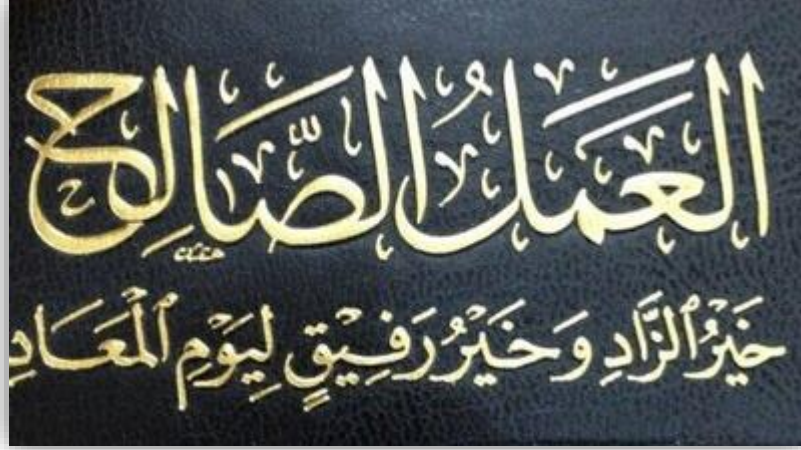 العَمَلُ الصَّالِح
خَيْرُ ٱلزَّادِ وَخَيْرُ رَفِيقٍ لِيَوْمِ ٱلْمَعَادِ